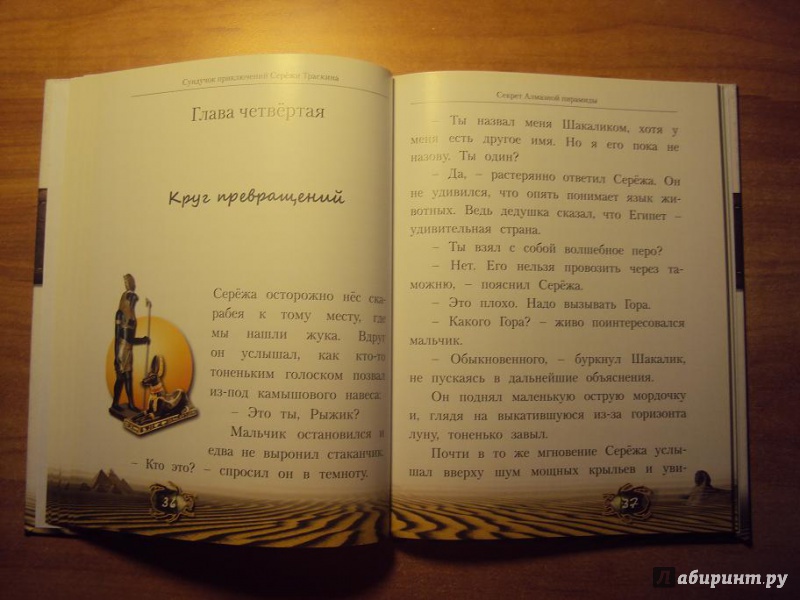 Сундучок приключений Серёжи Тараскина
Глава четвёртая
Круг превращений
Серёжа осторожно нёс ска-
рабея к тому месту, где
мы нашли жука. Вдруг
он услышал, как кто-то
тоненьким голоском позвал
из-под камышового навеса:
– Это ты, Рыжик?
Мальчик остановился и
едва не выронил стаканчик.
– Кто это? – спросил он в темноту.
36
Секрет Алмазной пирамиды
– Ты назвал меня Шакаликом, хотя у
меня есть другое имя. Но я его пока не
назову. Ты один?
– Да, – растерянно ответил Серёжа. Он
не удивился, что опять понимает язык жи-
вотных. Ведь дедушка сказал, что Египет –
удивительная страна.
– Ты взял с собой волшебное перо?
– Нет. Его нельзя провозить через та-
можню, – пояснил Серёжа.
– Это плохо. Надо вызывать Гора.
– Какого Гора? – живо поинтересовался
мальчик.
– Обыкновенного, – буркнул Шакалик,
не пускаясь в дальнейшие объяснения.
Он поднял маленькую острую мордочку
и, глядя на выкатившуюся из-за горизонта
луну, тоненько завыл.
Почти в то же мгновение Серёжа услы-
шал вверху шум мощных крыльев и уви-
37
Лабиринт.ру